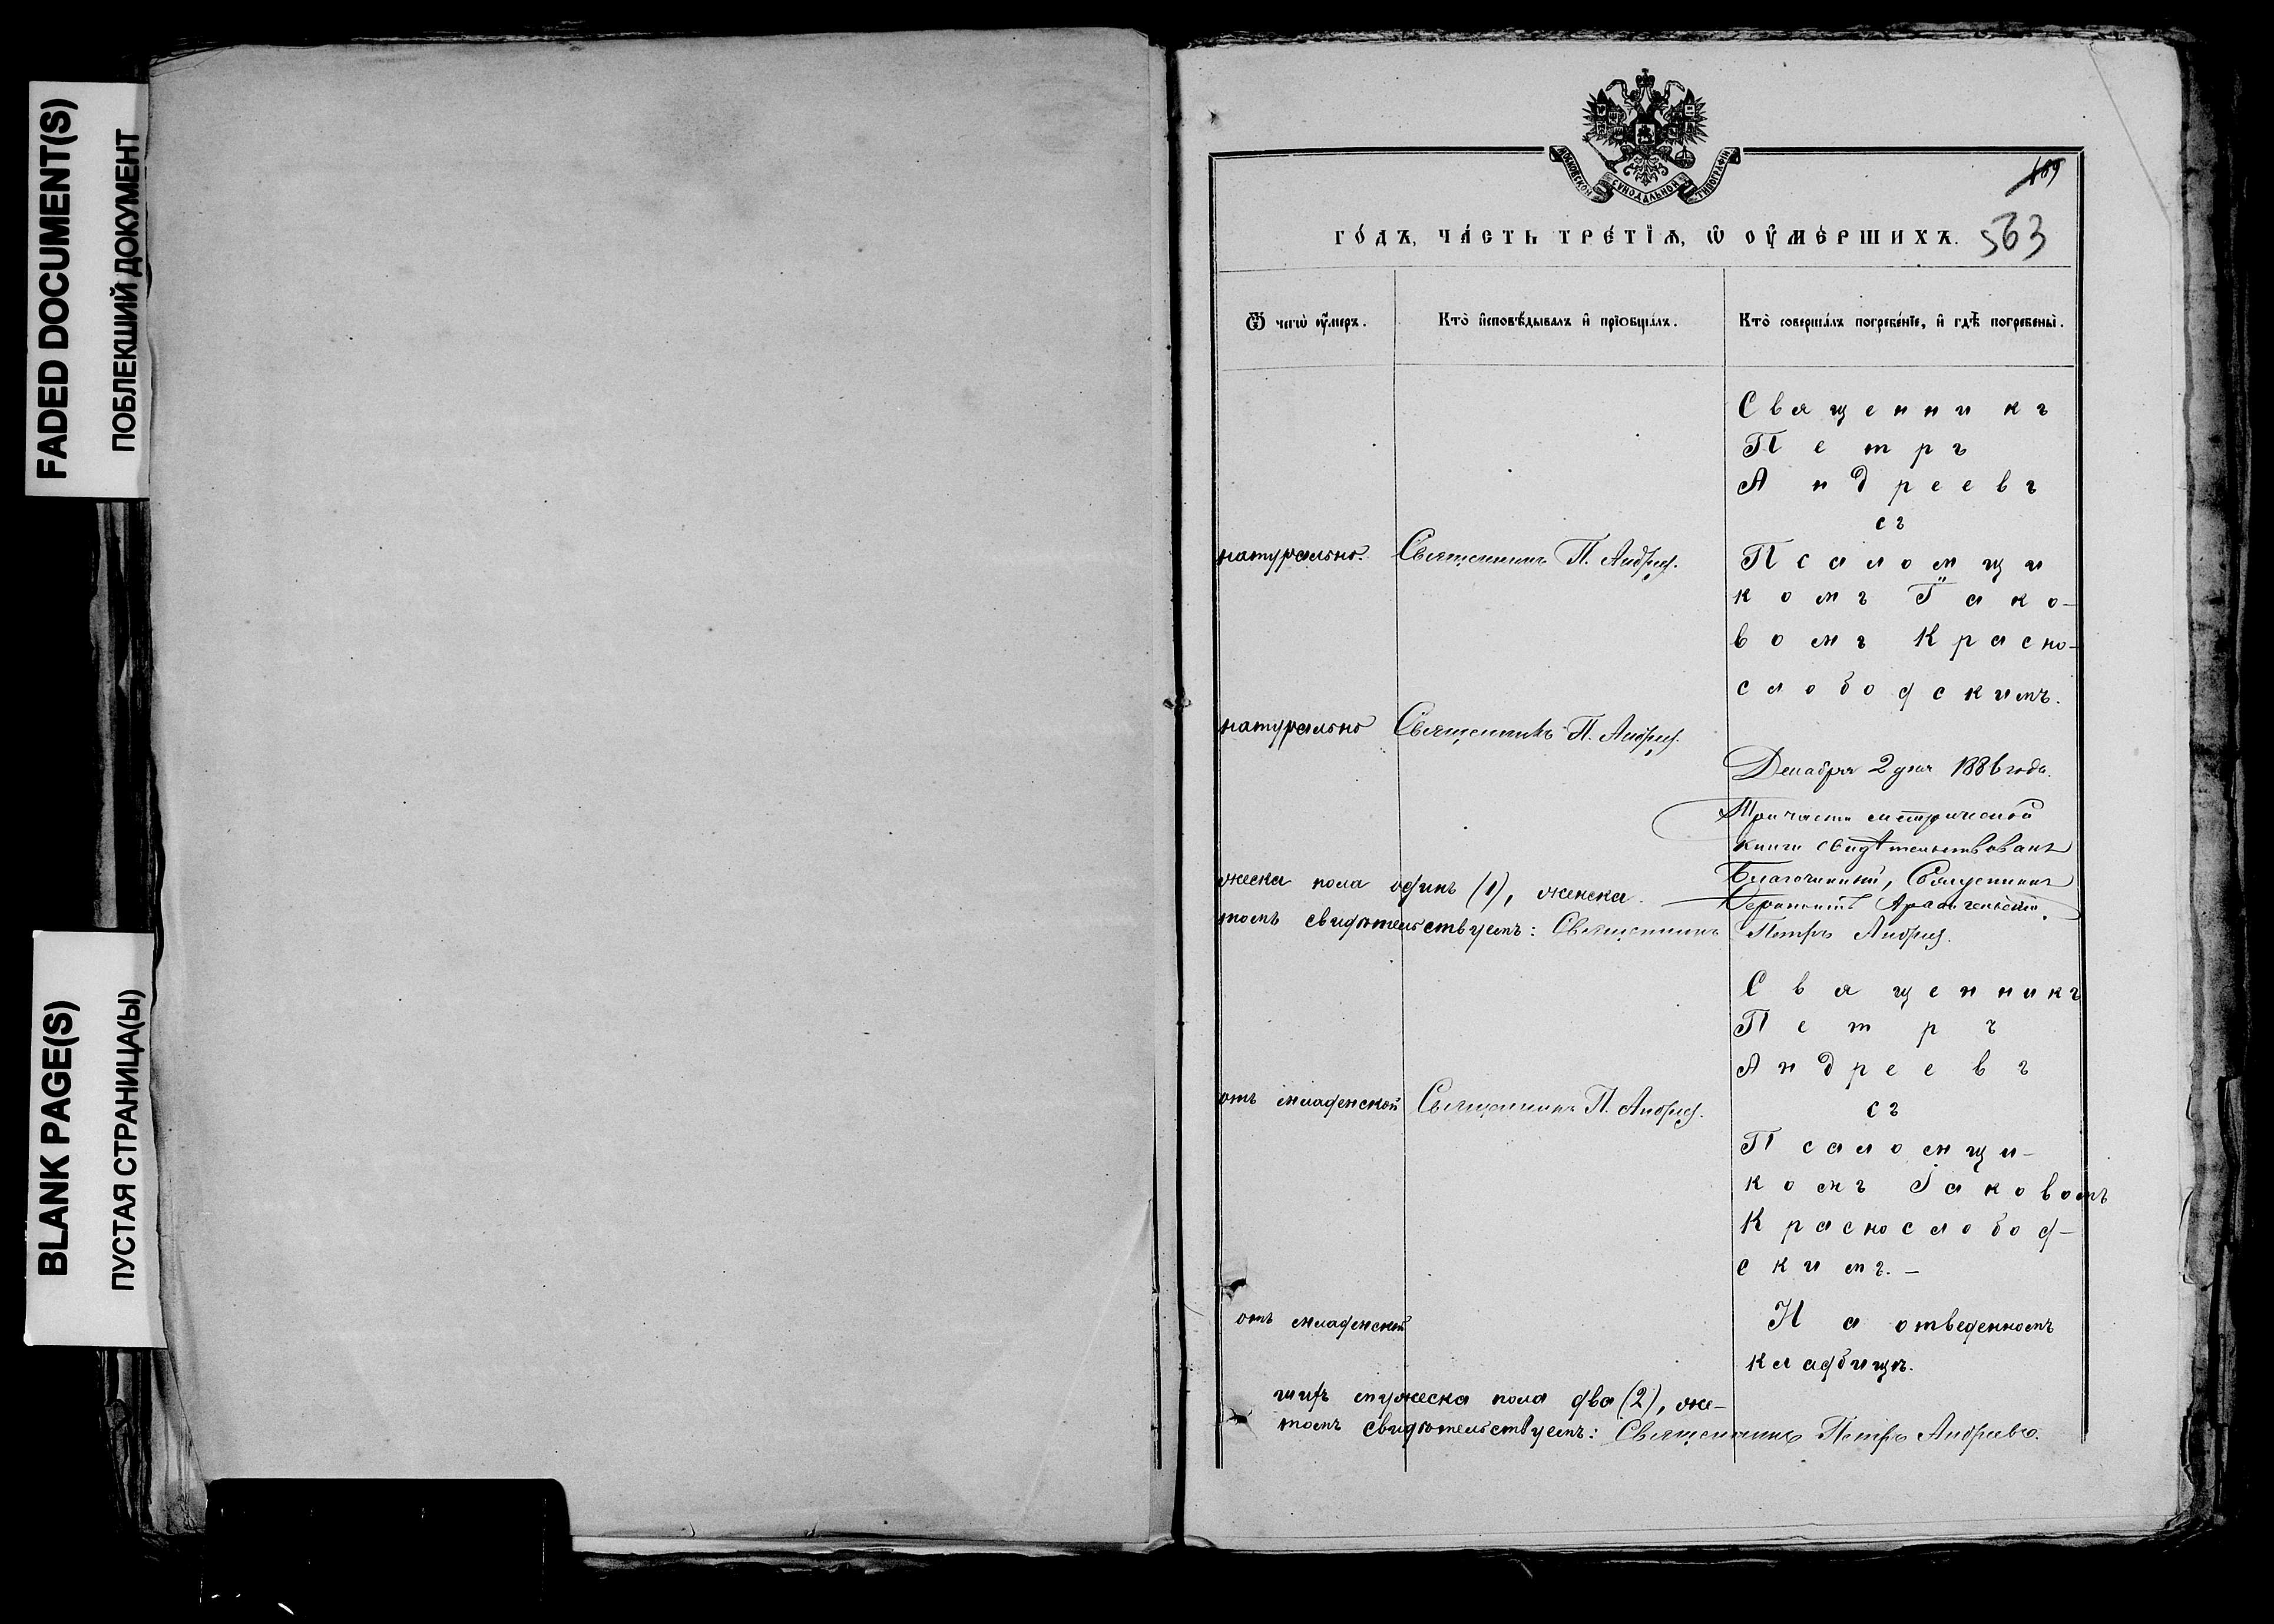 FADED DOCUMENT(S)
ПОБЛЕКШИЙ ДОКУМЕНТ
BLANK PAGE(S)
ПУСТАЯ СТРАНИЦА(Ы)
МОСКОВСКОЙ СѴНОДАЛЬНОЙ ТИПОГРАФІИ
189
563
го́дъ, ча́сть тре́тїѧ, ѡ҆ оу҆ме́ршихъ.
Ѿ чегѡ̀ оу҆́меръ.
Кто̀ и҆сповѣ́дывалъ и҆ прїѻбща́лъ.
Кто̀ соверша́лъ погребе́нїе, и҆ гдѣ̀ погребены̀.
Священникъ
Петръ
Андреевъ
съ
натурально.
Священникъ П. Андреев.
Псаломщи
комъ Іако-
вомъ Красно-
слободскимъ.
натурально
Священникъ П. Андреев.
Декабря 2 дня 1886 года.
Три части метрической
книги свидѣтельствовалъ
Благочинный, Священникъ
жеска пола одинъ (1), женска
томъ свидѣтельствуемъ: Священникъ Петръ Андреев.
Священникъ
Петръ
Андреевъ
отъ младенской
Священникъ П. Андреев.
съ
Псаломщи-
комъ Іаковомъ
Краснослобод-
скимъ. –
отъ младенской
На отведенномъ
кладбищѣ.
шихъ мужеска пола два (2), же-
томъ свидѣтельствуемъ: Священникъ Петръ Андреевъ.